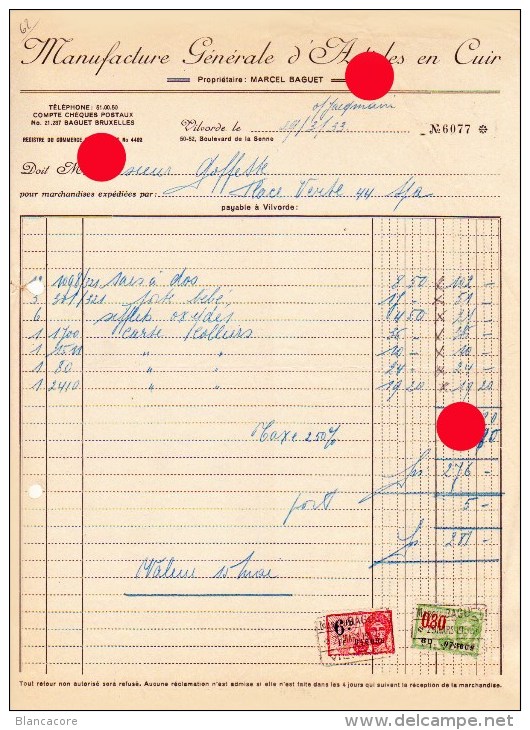 62
Manufacture Générale d'A les en Cuir
Propriétaire: MARCEL BAGUET
TÉLÉPHONE: 51.00.50
COMPTE CHÈQUES POSTAUX
No. 21.257 BAGUET BRUXELLES
REGISTRE DU COMMERCE No 4492
Vilvorde le 29/3/33
50-52, Boulevard de la Senne
№6077
Doit M sieur Goffette
pour marchandises expédiées par: Place Verte 44 Spa
payable à Vilvorde:
sacs à dos 8 50 x 102 -
3 301/321 porte bébé 17 - x 51 -
6 sifflets oxydés 4 50 x
1 1700 carte colliers 26 -
1 " " 10 - x 10 -
1 80 " " 24 - x 24 -
1 2410 " " 19 20 x 19 20
Taxe 2.50%
frs 276 -
port 5 -
frs 281 -
Valeur
0.30
Tout retour non autorisé sera refusé. Aucune réclamation n'est admise si elle n'est faite dans les 4 jours qui suivent la réception de la marchandise.
Blancacore
www.delcampe.net